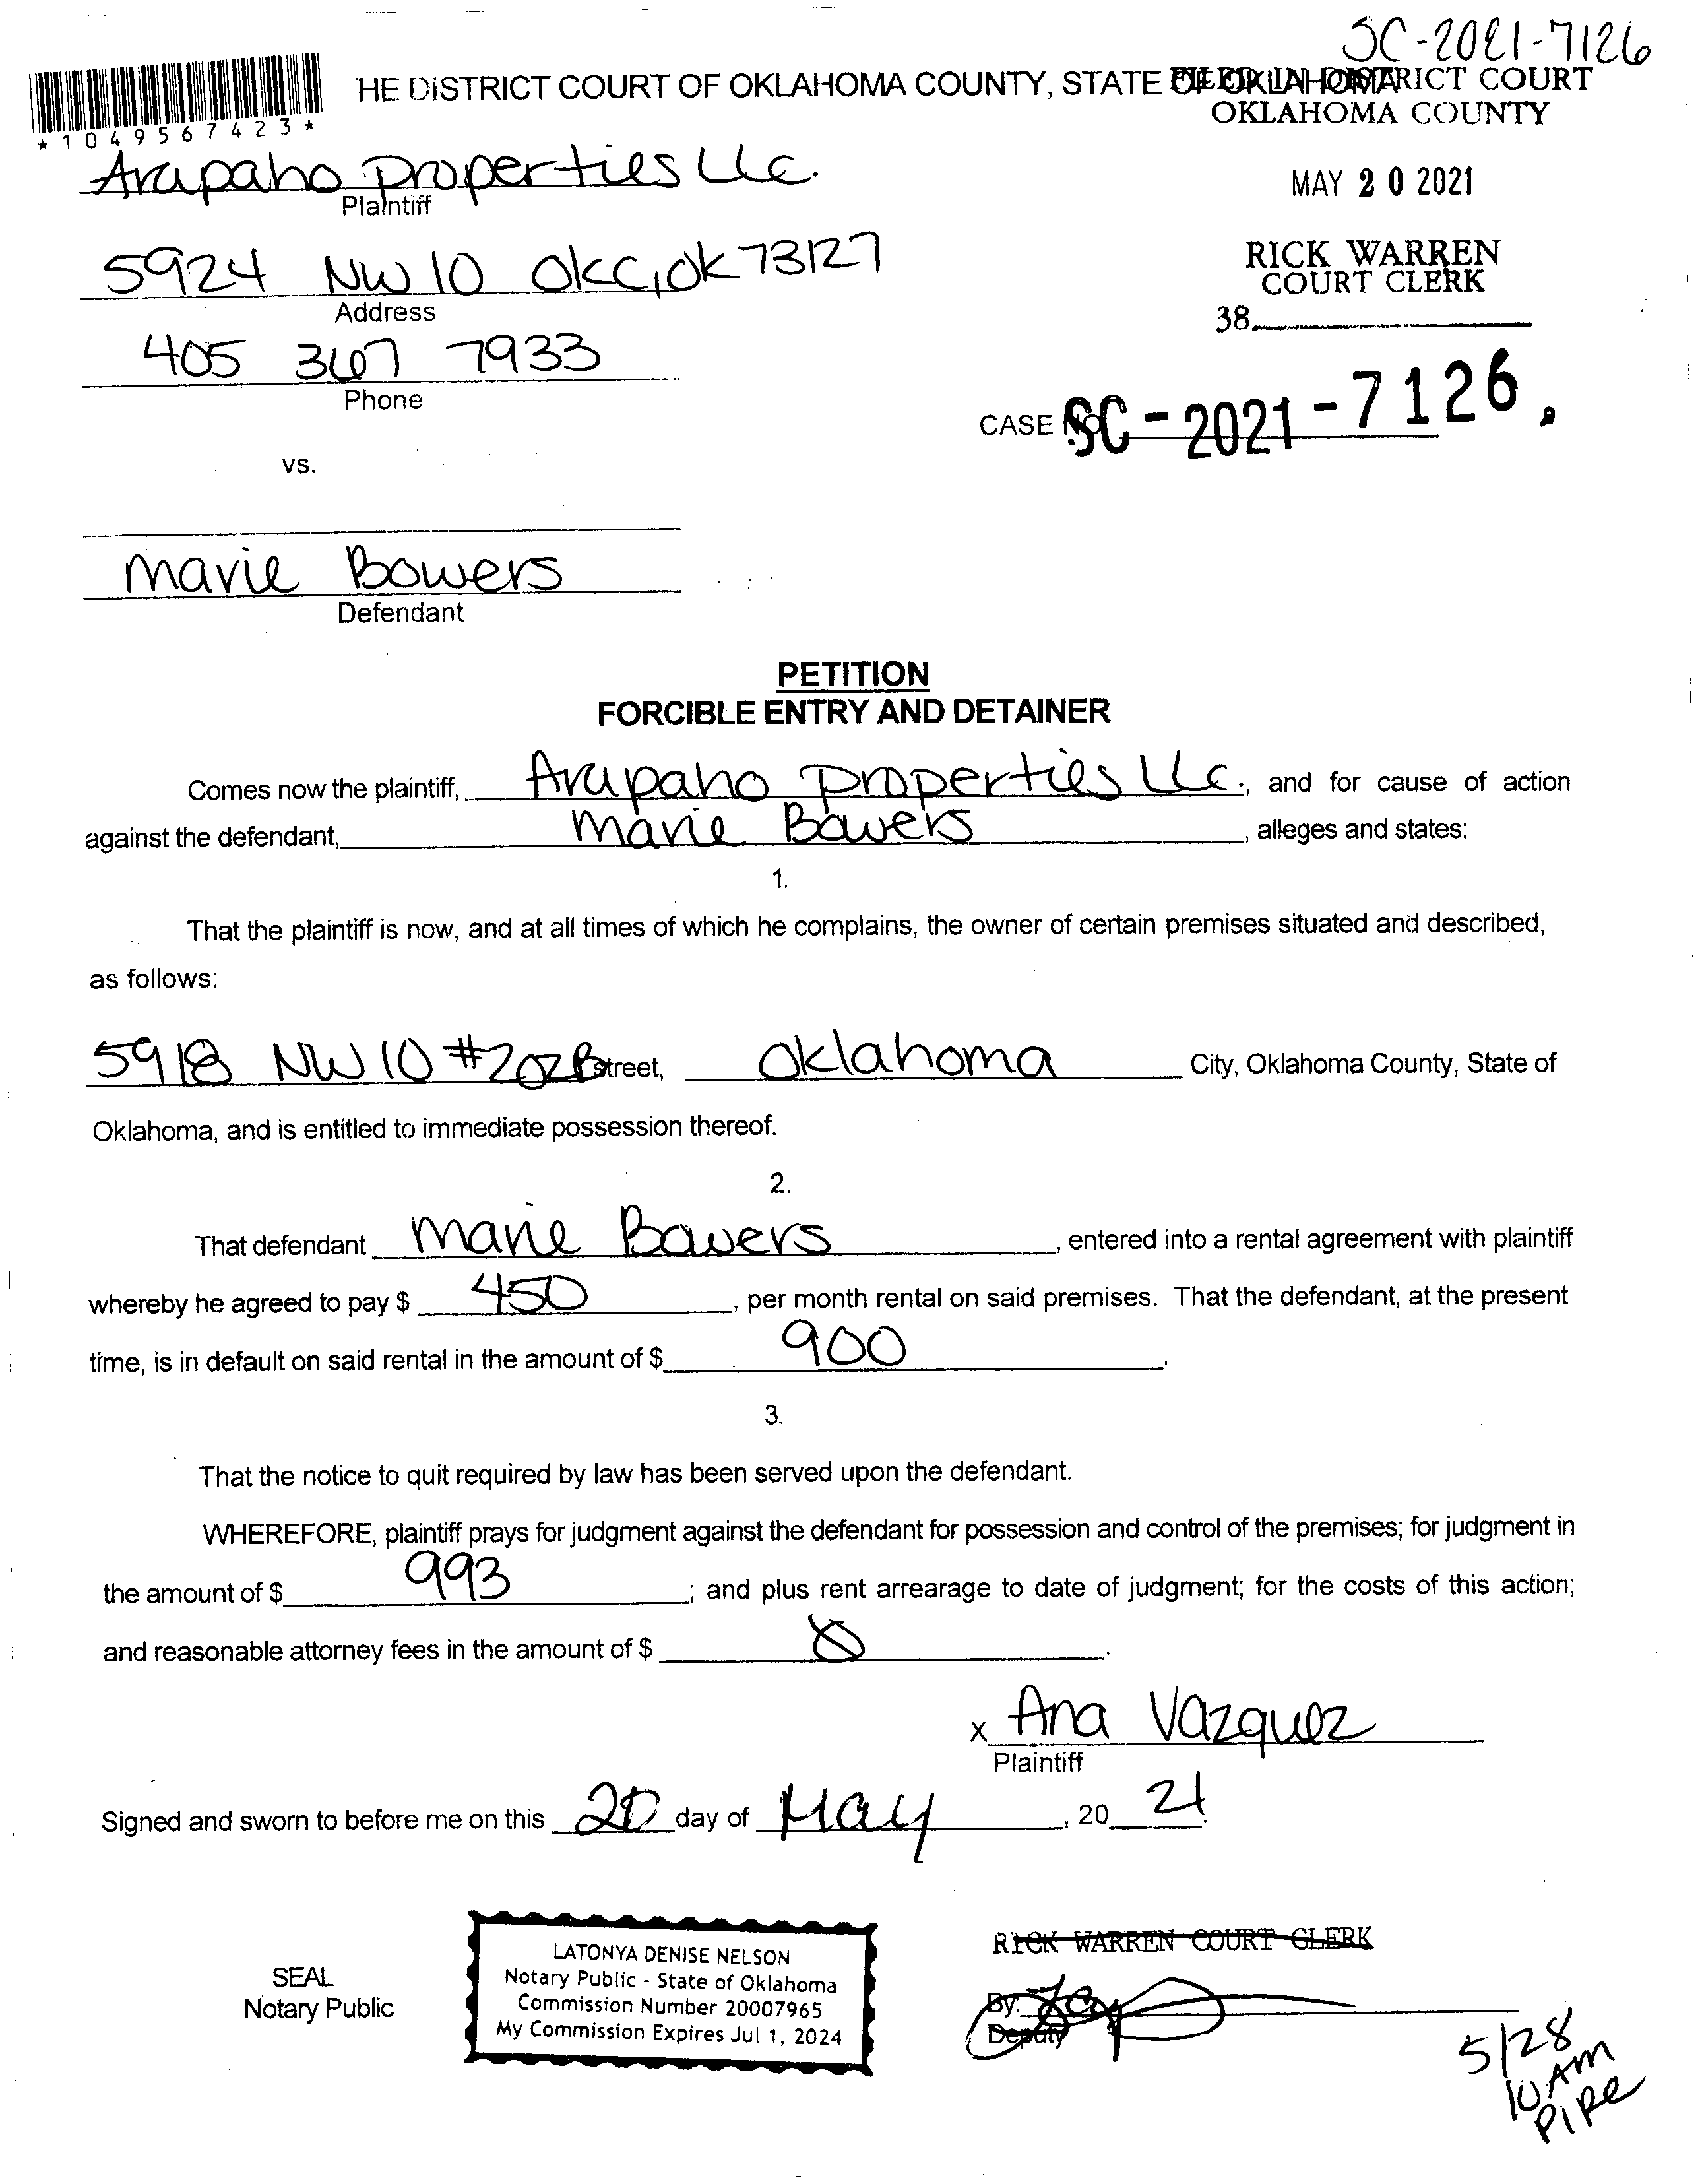 SC-2021-7126
HE DISTRICT COURT OF OKLAHOMA COUNTY, STATE OF OKLAHOMA
FILED IN DISTRICT COURT
OKLAHOMA COUNTY
*1049567423*
Arapaho Properties LLC.
Plaintiff
MAY 20 2021
5924 NW 10 OKC, OK 73127
Address
RICK WARREN
COURT CLERK
38
405 367 7933
Phone
CASE NO. SC-2021-7126
vs.
Marie Bowers
Defendant
PETITION
FORCIBLE ENTRY AND DETAINER
Comes now the plaintiff, Arapaho Properties LLC., and for cause of action
against the defendant, Marie Bowers, alleges and states:
1.
That the plaintiff is now, and at all times of which he complains, the owner of certain premises situated and described,
as follows:
5918 NW 10 #202B Street, Oklahoma City, Oklahoma County, State of
Oklahoma, and is entitled to immediate possession thereof.
2.
That defendant Marie Bowers, entered into a rental agreement with plaintiff
whereby he agreed to pay $ 450, per month rental on said premises. That the defendant, at the present
time, is in default on said rental in the amount of $ 900.
3.
That the notice to quit required by law has been served upon the defendant.
WHEREFORE, plaintiff prays for judgment against the defendant for possession and control of the premises; for judgment in
the amount of $ 993; and plus rent arrearage to date of judgment; for the costs of this action;
and reasonable attorney fees in the amount of $ 0.
x Ana Vazquez
Plaintiff
Signed and sworn to before me on this 20 day of May, 20 21.
SEAL
Notary Public
LATONYA DENISE NELSON
Notary Public - State of Oklahoma
Commission Number 20007965
My Commission Expires Jul 1, 2024
RICK WARREN COURT CLERK
By:
Deputy
5/28
10 AM
PIRE